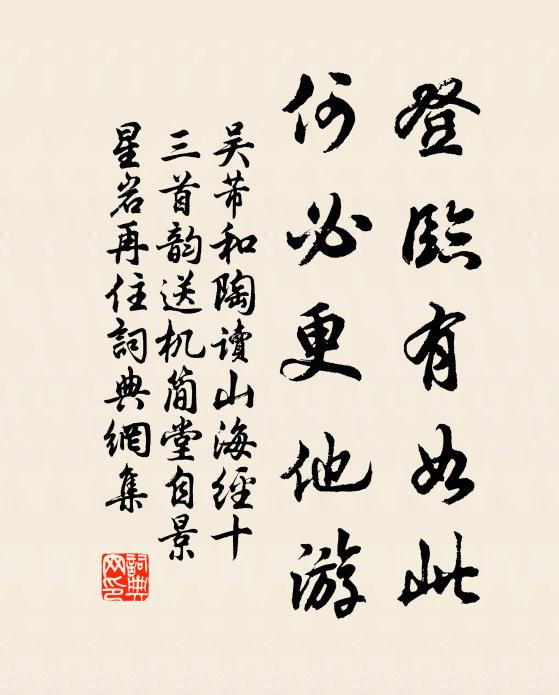 登臨有如此
何必更他游
吴芾和陶讀山海經十
三首韵送机简堂自景
星岩再住詞典網集
詞典网印